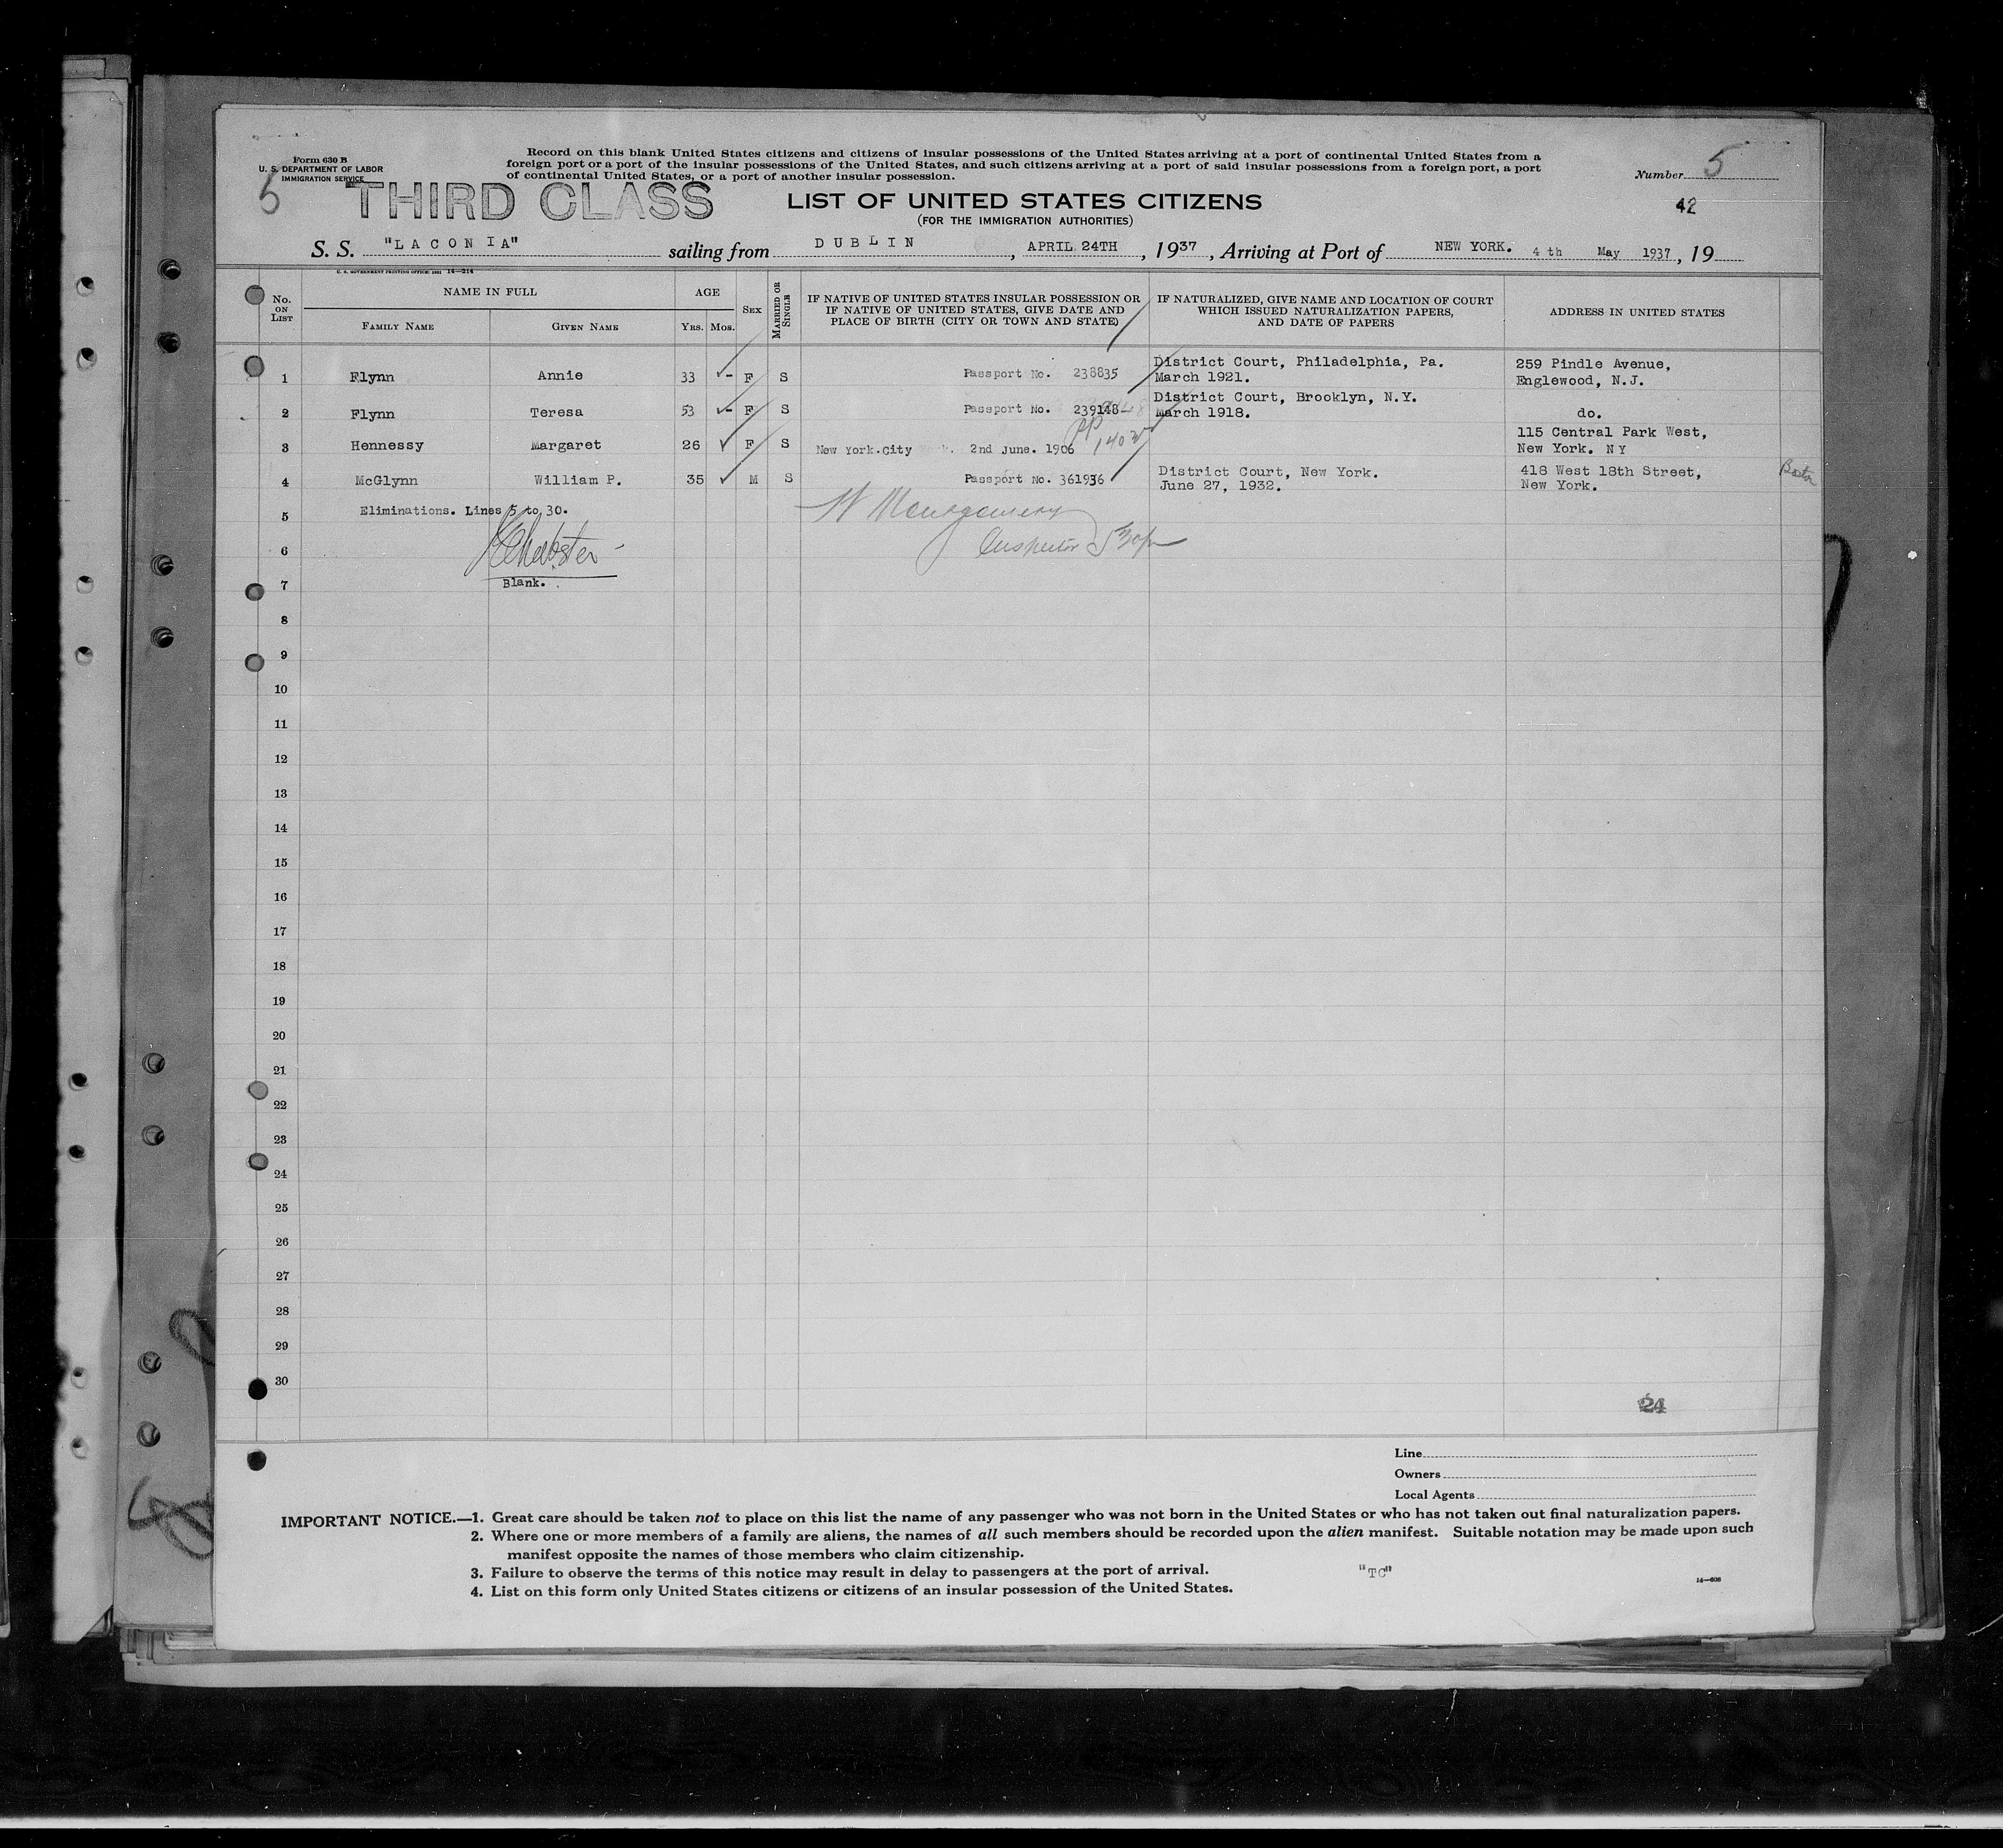 Form 630 B
U. S. DEPARTMENT OF LABOR
IMMIGRATION SERVICE
5
THIRD CLASS
Record on this blank United States citizens and citizens of insular possessions of the United States arriving at a port of continental United States from a
foreign port or a port of the insular possessions of the United States, and such citizens arriving at a port of said insular possessions from a foreign port, a port
of continental United States, or a port of another insular possession.
Number 5
42
LIST OF UNITED STATES CITIZENS
(FOR THE IMMIGRATION AUTHORITIES)
S. S. "LACONIA" sailing from DUBLIN, APRIL 24TH, 1937, Arriving at Port of NEW YORK. 4 th May 1937, 19
U. S. GOVERNMENT PRINTING OFFICE: 1931 14—214
No. ON LIST
NAME IN FULL
FAMILY NAME
GIVEN NAME
AGE
YRS. MOS.
SEX
MARRIED OR SINGLE
IF NATIVE OF UNITED STATES INSULAR POSSESSION OR
IF NATIVE OF UNITED STATES, GIVE DATE AND
PLACE OF BIRTH (CITY OR TOWN AND STATE)
IF NATURALIZED, GIVE NAME AND LOCATION OF COURT
WHICH ISSUED NATURALIZATION PAPERS,
AND DATE OF PAPERS
ADDRESS IN UNITED STATES
1 Flynn Annie 33 - F S Passport No. 238835 District Court, Philadelphia, Pa.
March 1921.
259 Pindle Avenue,
Englewood, N.J.
2 Flynn Teresa 53 - F S Passport No. 239148 District Court, Brooklyn, N.Y.
March 1918.
do.
3 Hennessy Margaret 26 F S New York.City 2nd June. 1906
PP
115 Central Park West,
New York. NY
4 McGlynn William P. 35 M S Passport No. 361936 District Court, New York.
June 27, 1932.
418 West 18th Street,
New York.
Boston
5 Eliminations. Lines 5 to 30.
W Montgomery
6
Inspector
7 Blank.
8
9
10
11
12
13
14
15
16
17
18
19
20
21
22
23
24
25
26
27
28
29
30
24
Line
Owners
Local Agents
IMPORTANT NOTICE.—1. Great care should be taken not to place on this list the name of any passenger who was not born in the United States or who has not taken out final naturalization papers.
2. Where one or more members of a family are aliens, the names of all such members should be recorded upon the alien manifest. Suitable notation may be made upon such
manifest opposite the names of those members who claim citizenship.
3. Failure to observe the terms of this notice may result in delay to passengers at the port of arrival.
"TC"
14—606
4. List on this form only United States citizens or citizens of an insular possession of the United States.